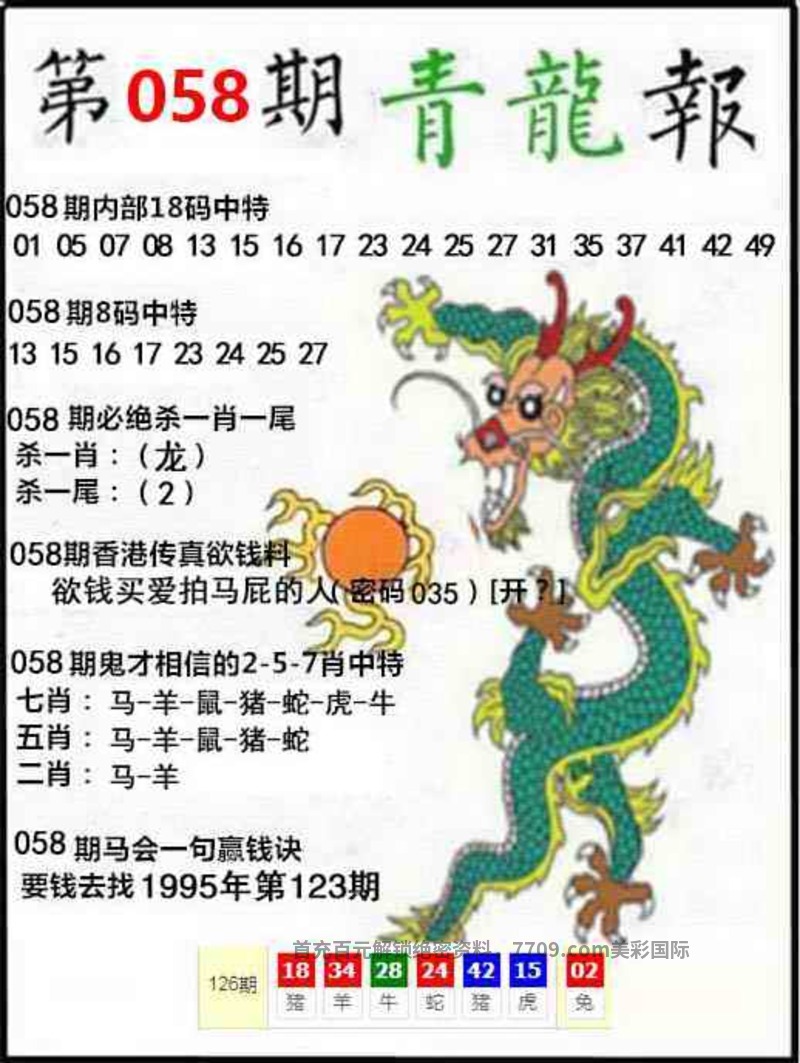 第058期青龍報
058期内部18码中特
01 05 07 08 13 15 16 17 23 24 25 27 31 35 37 41 42 49
058期8码中特
13 15 16 17 23 24 25 27
058期必绝杀一肖一尾
杀一肖：（龙）
杀一尾：（2）
058期香港传真欲钱料
欲钱买爱拍马屁的人(密码035）[开？]
058期鬼才相信的2-5-7肖中特
七肖：马-羊-鼠-猪-蛇-虎-牛
五肖：马-羊-鼠-猪-蛇
二肖：马-羊
058期马会一句赢钱诀
要钱去找1995年第123期
首充百元解锁绝密资料，7709.com美彩国际
126期 18 34 28 24 42 15 02
猪 羊 牛 蛇 猪 虎 兔